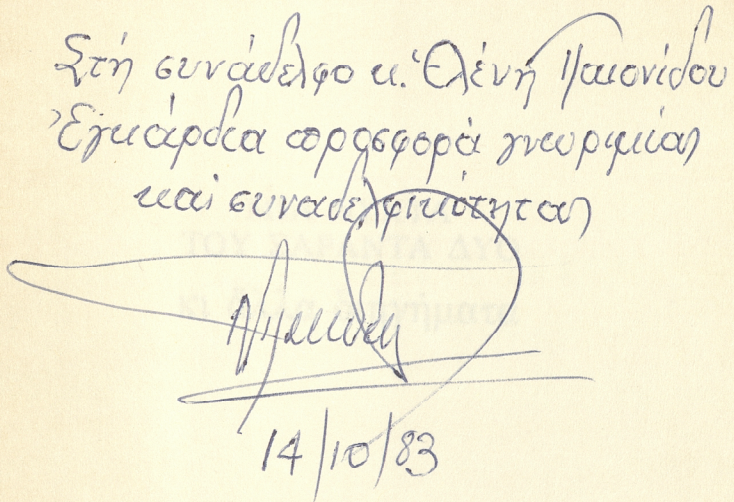 Στή συνάδελφο κ. Ἑλένη Παιονίδου
Ἐγκάρδια προσφορά γνωριμίας
καί συναδελφικότητας
14/10/83